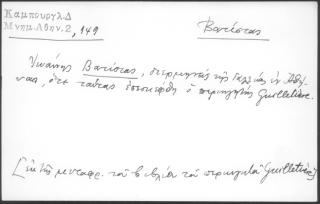 Καμπουργλ.Δ
Μνημ.Αθην.2, 149
Βατίστας
Ἰωάννης Βατίστας, διερμηνεὺς τῆς Γαλλίας ἐν Ἀθή-
ναις, ὅτε ταύτας ἐπεσκέφθη ὁ περιηγητὴς Guilletière.
[ἐκ τῆς μεταφρ. τοῦ βιβλίου τοῦ περιηγητοῦ Guilletière]